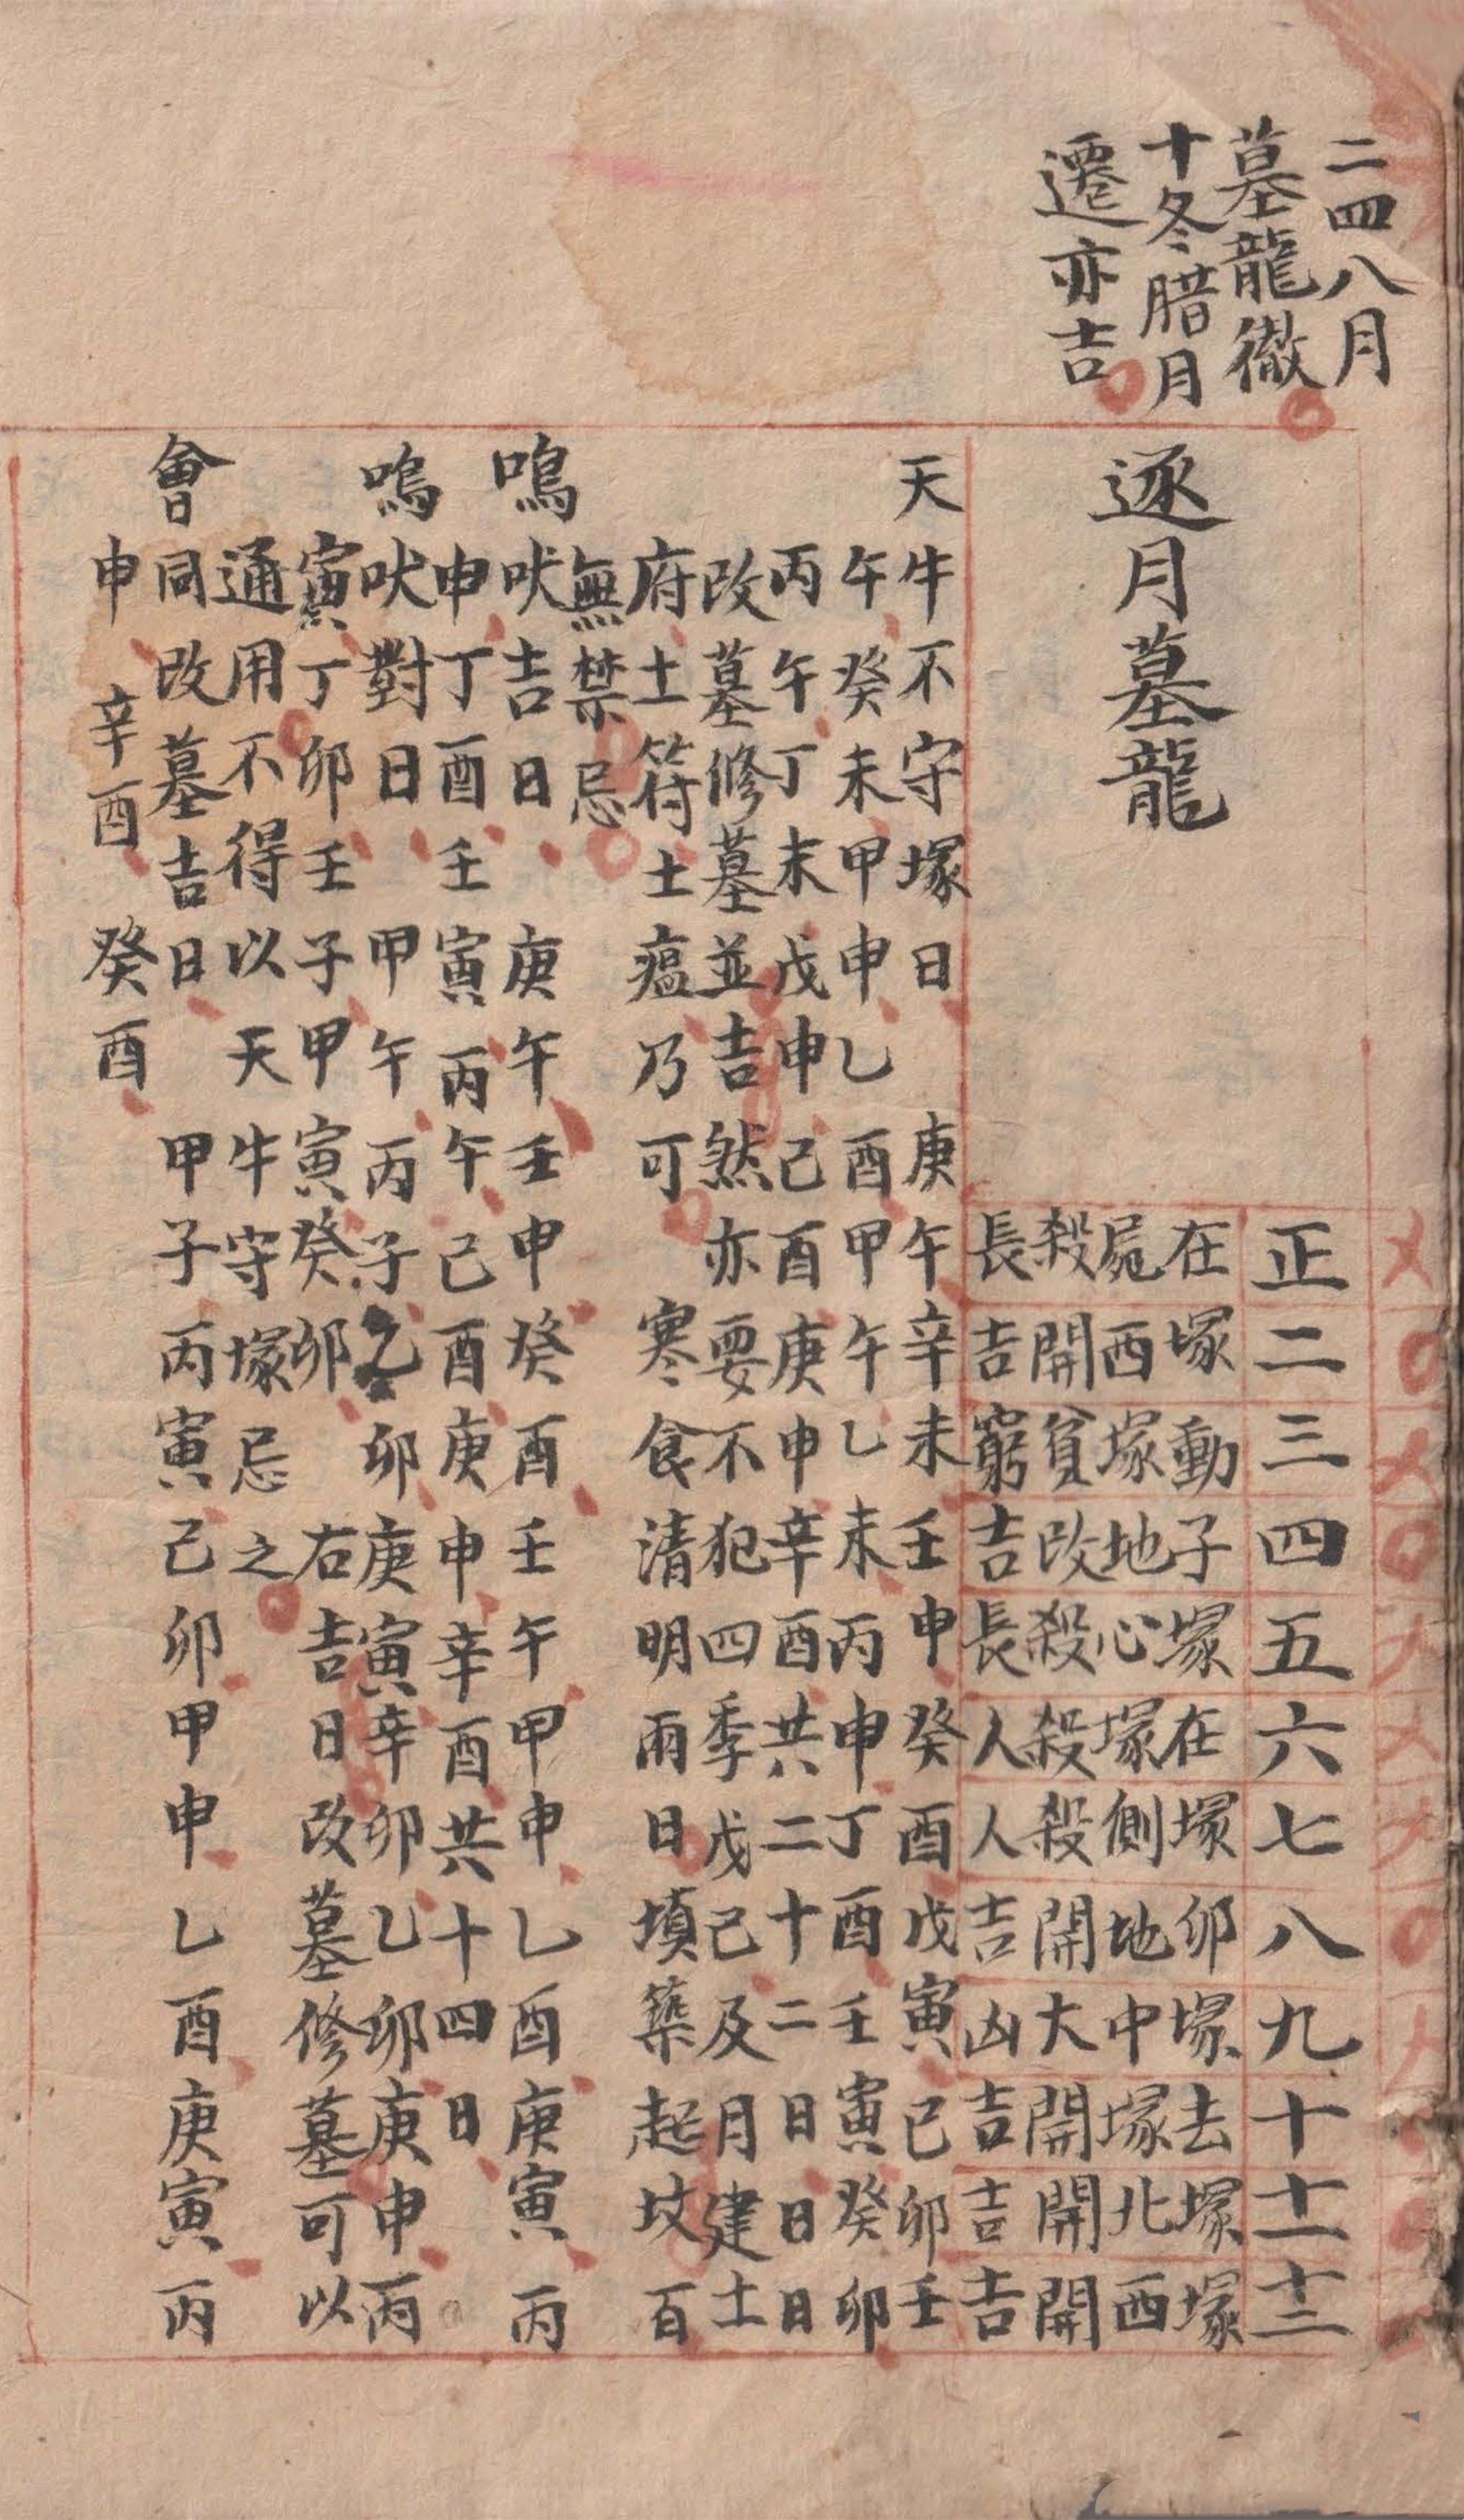 二四八月
墓龍徹
十冬腊月
遷亦吉
逐月墓龍
正二三四五六七八九十十一十二
在塚動子塚在塚卯塚去塚塚
屍西塚地心塚側地中塚北西
殺開貧改殺殺殺開大開開開
長吉窮吉長人人吉凶吉吉吉
天牛不守塚日 庚午辛未壬申癸酉戊寅己卯壬
午癸未甲申乙酉甲午乙未丙申丁酉壬寅癸卯
丙午丁未戊申己酉庚申辛酉共二十二日日日
改墓修墓並吉然亦要不犯四季戊己及月建土
府土符土瘟乃可 寒食清明兩日填築起坟百
無禁忌
鳴吠吉日 庚午壬申癸酉壬午甲申乙酉庚寅丙
申丁酉壬寅丙午己酉庚申辛酉共十四日
鳴吠對日 甲午丙子乙卯庚寅辛卯乙卯庚申丙
寅丁卯壬子甲寅癸卯 右吉日改墓修墓可以
通用不得以天牛守塚忌之
會同改墓吉日 甲子丙寅己卯甲申乙酉庚寅丙
申 辛酉 癸酉